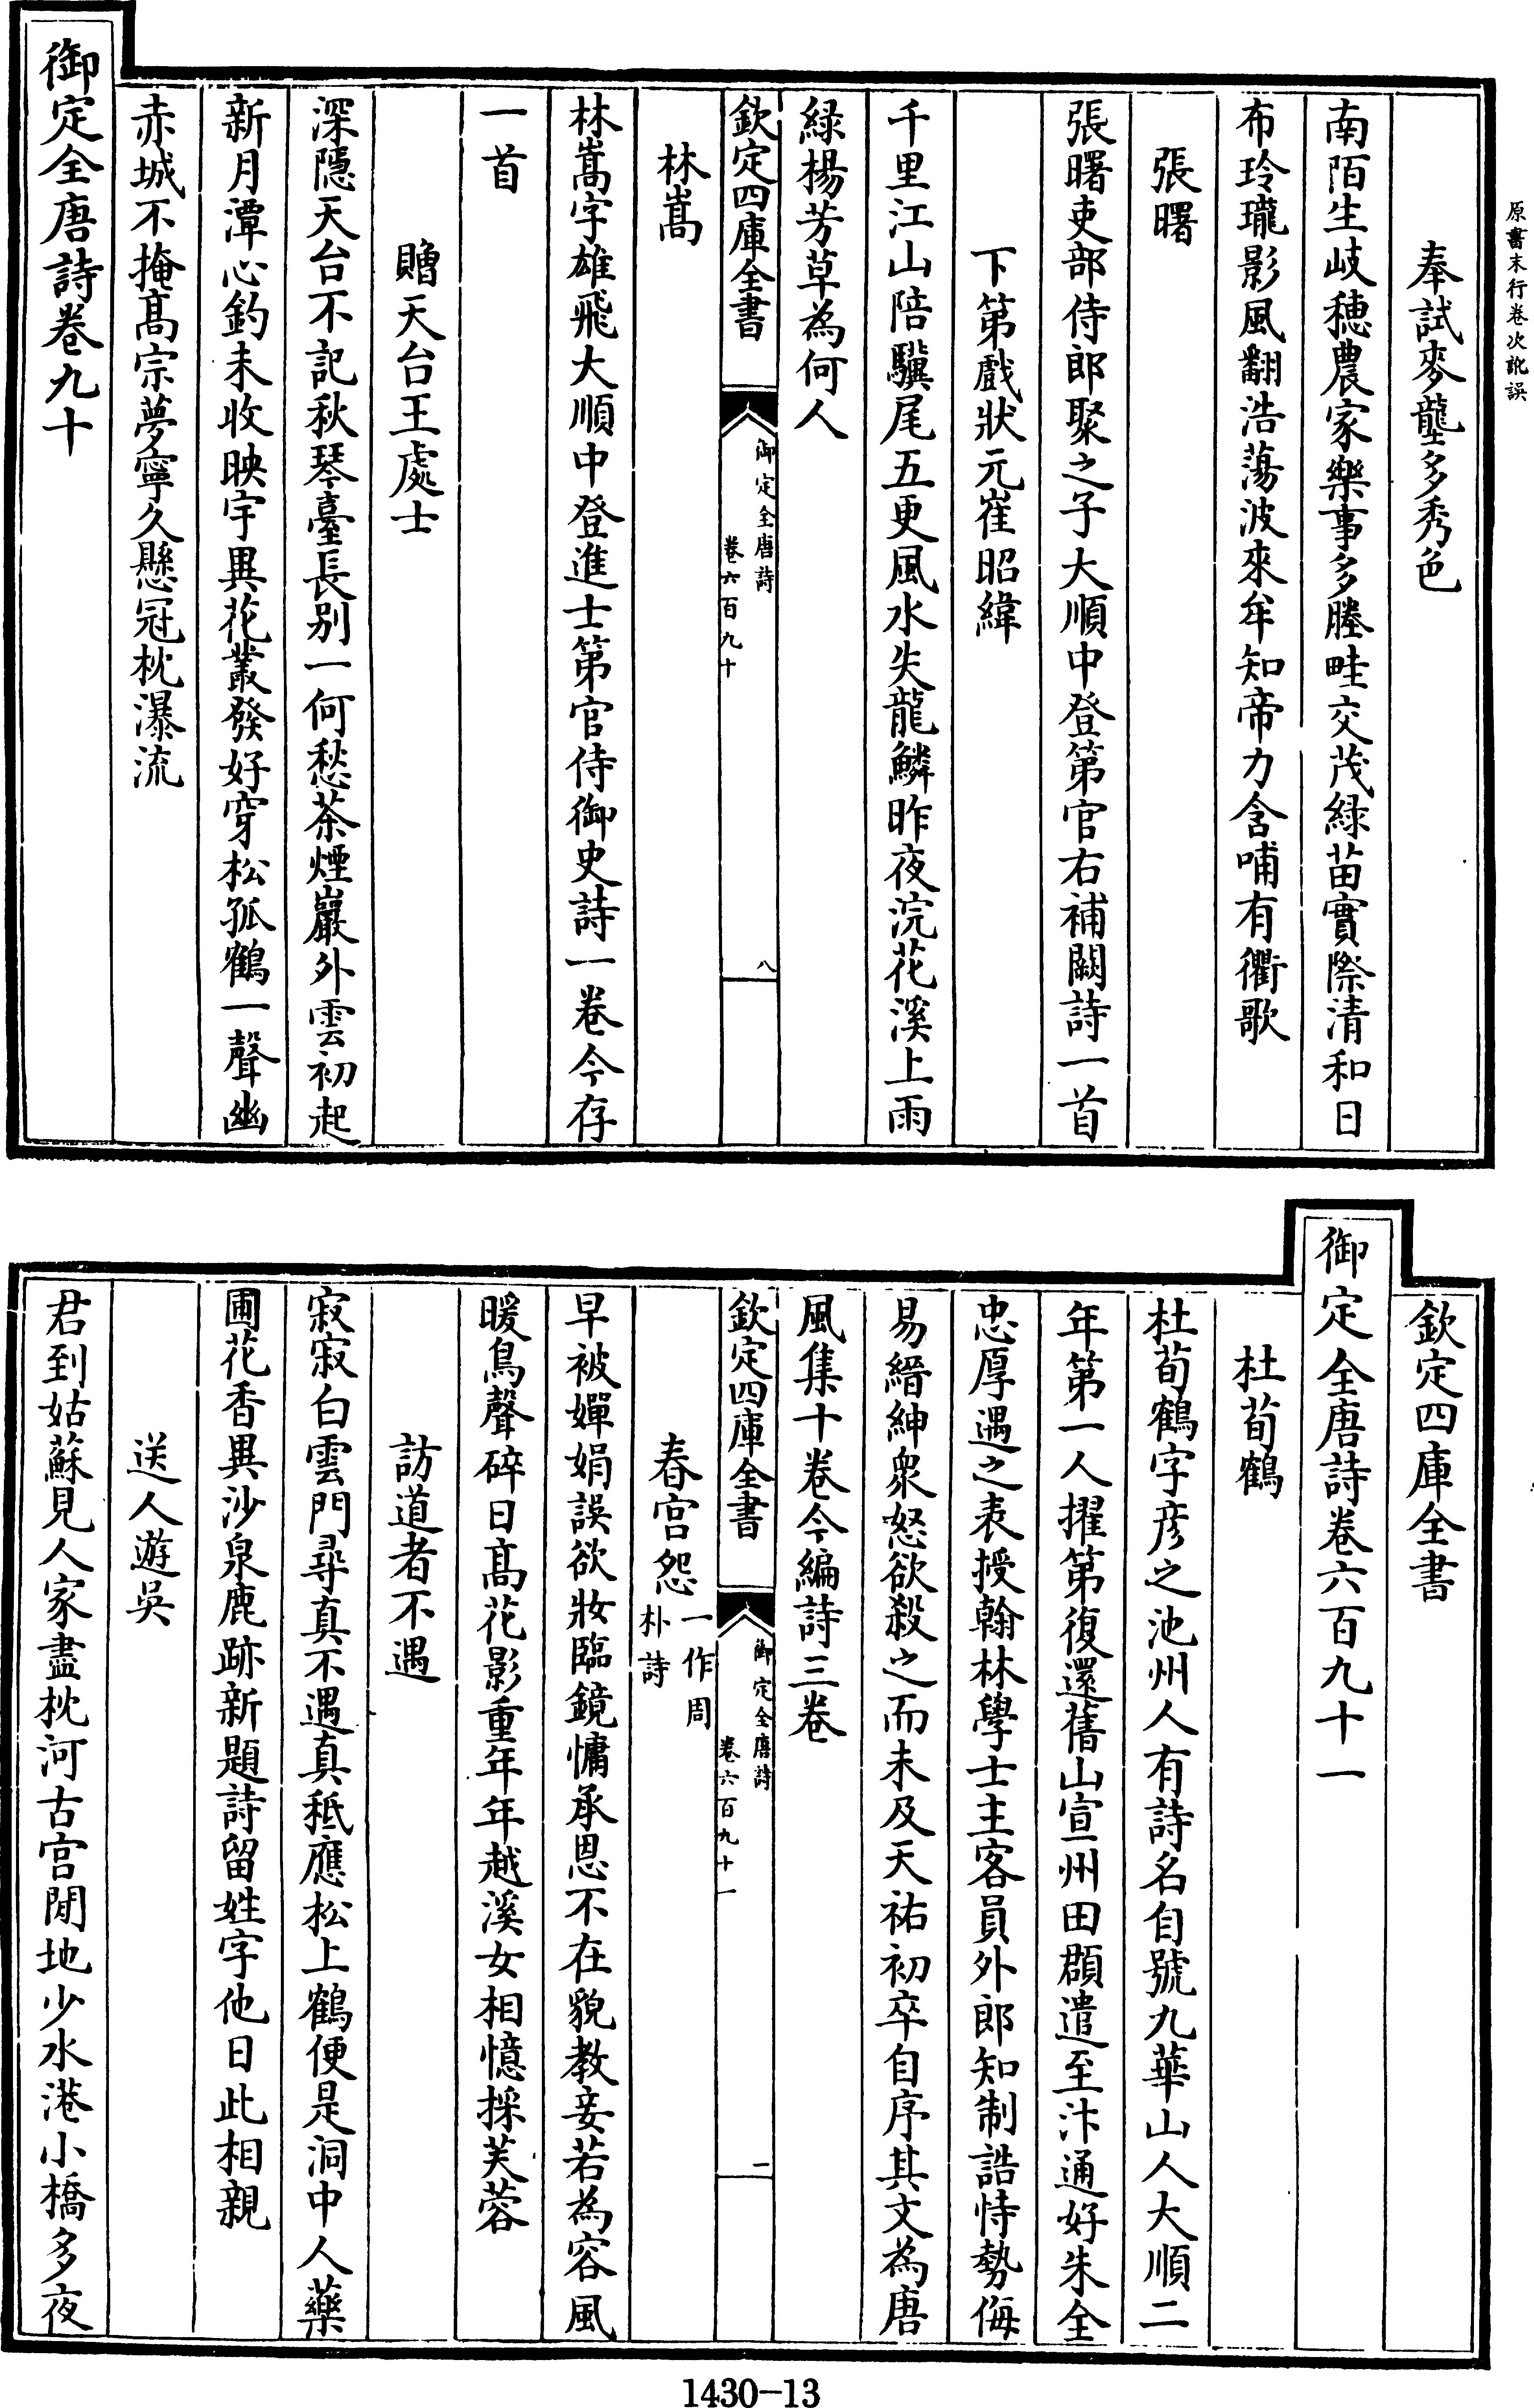 原書末行卷次訛誤
奉試麥壟多秀色
南陌生岐穗農家樂事多塍畦交茂綠苗實際清和日
布玲瓏影風翻浩蕩波來牟知帝力含哺有衢歌
張曙
張曙吏部侍郎聚之子大順中登第官右補闕詩一首
下第戲狀元崔昭緯
千里江山陪驥尾五更風水失龍鱗昨夜浣花溪上雨
綠楊芳草為何人
欽定四庫全書
御定全唐詩
卷六百九十
八
林嵩
林嵩字雄飛大順中登進士第官侍御史詩一卷今存
一首
贈天台王處士
深隱天台不記秋琴臺長别一何愁茶煙巖外雲初起
新月潭心釣未收映宇異花叢發好穿松孤鶴一聲幽
赤城不掩髙宗夢寧久懸冠枕瀑流
御定全唐詩卷九十
欽定四庫全書
御定全唐詩卷六百九十一
杜荀鶴
杜荀鶴字彦之池州人有詩名自號九華山人大順二
年第一人擢第復還舊山宣州田頵遣至汴通好朱全
忠厚遇之表授翰林學士主客員外郎知制誥恃勢侮
易縉紳衆怒欲殺之而未及天祐初卒自序其文為唐
風集十卷今編詩三卷
欽定四庫全書
御定全唐詩
卷六百九十一
一
春宫怨一作周朴詩
早被嬋娟誤欲妝臨鏡慵承恩不在貌教妾若為容風
暖鳥聲碎日髙花影重年年越溪女相憶採芙蓉
訪道者不遇
寂寂白雲門尋真不遇真秪應松上鶴便是洞中人藥
圃花香異沙泉鹿跡新題詩留姓字他日此相親
送人遊吳
君到姑蘇見人家盡枕河古宫閒地少水港小橋多夜
1430-13